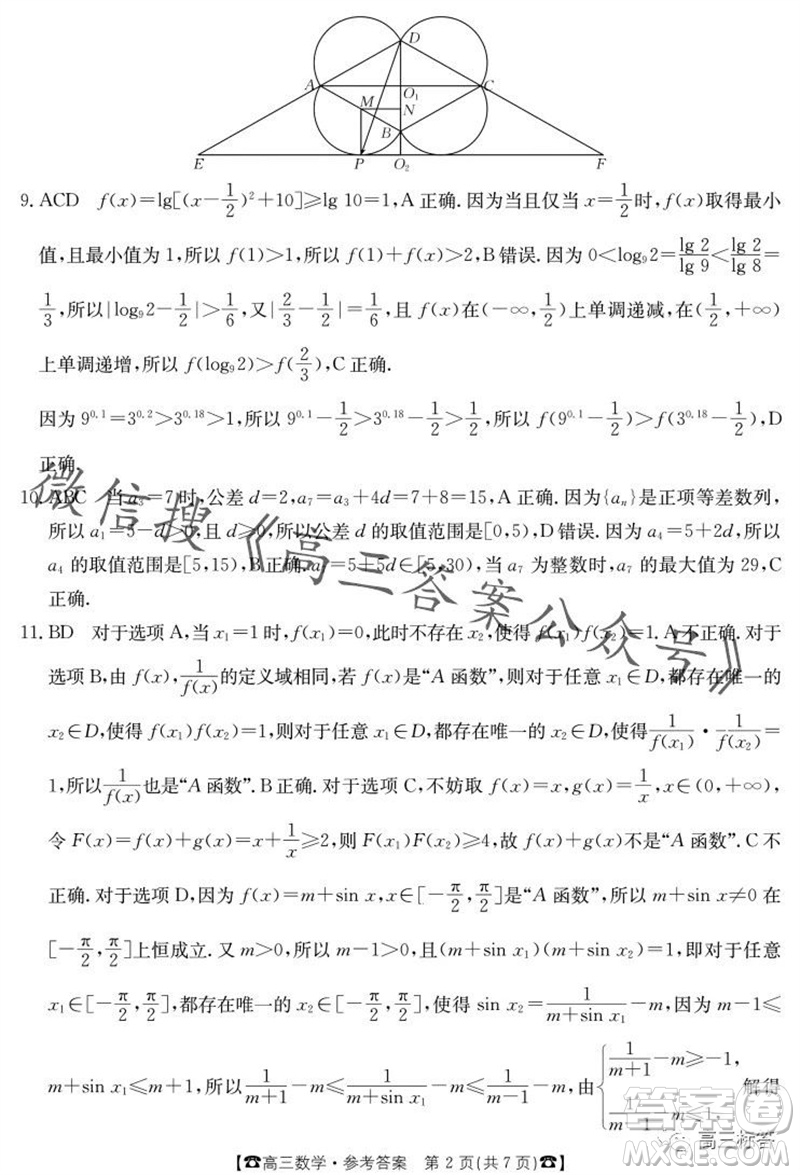 D
A
O₁
C
M
N
B
E
P
O₂
F
9. ACD f(x)=lg[(x-1/2)²+10]≥lg 10=1,A 正确. 因为当且仅当 x=1/2时,f(x)取得最小
值,且最小值为 1,所以 f(1)>1,所以 f(1)+f(x)>2,B 错误. 因为 0<log₉2=lg 2/lg 9<lg 2/lg 8=
1/3,所以|log₉2-1/2|>1/6,又|2/3-1/2|=1/6,且 f(x)在(-∞,1/2)上单调递减,在(1/2,+∞)
上单调递增,所以 f(log₉2)>f(2/3),C 正确.
因为 9^0.1=3^0.2>3^0.18>1,所以 9^0.1-1/2>3^0.18-1/2>1/2,所以 f(9^0.1-1/2)>f(3^0.18-1/2),D
正确.
10. ABC 当 a₃=7 时,公差 d=2,a₇=a₃+4d=7+8=15,A 正确. 因为{aₙ}是正项等差数列,
所以 a₁=5-d>0,且 d≥0,所以公差 d 的取值范围是[0,5),D 错误. 因为 a₄=5+2d,所以
a₄ 的取值范围是[5,15),B 正确. a₇=5+5d∈[5,30),当 a₇ 为整数时,a₇ 的最大值为 29,C
正确.
11. BD 对于选项 A,当 x₁=1 时,f(x₁)=0,此时不存在 x₂,使得 f(x₁)f(x₂)=1. A 不正确. 对于
选项 B,由 f(x),1/f(x)的定义域相同,若 f(x)是“A 函数”,则对于任意 x₁∈D,都存在唯一的
x₂∈D,使得 f(x₁)f(x₂)=1,则对于任意 x₁∈D,都存在唯一的 x₂∈D,使得1/f(x₁)·1/f(x₂)=
1,所以1/f(x)也是“A 函数”. B 正确. 对于选项 C,不妨取 f(x)=x,g(x)=1/x,x∈(0,+∞),
令 F(x)=f(x)+g(x)=x+1/x≥2,则 F(x₁)F(x₂)≥4,故 f(x)+g(x)不是“A 函数”. C 不
正确. 对于选项 D,因为 f(x)=m+sin x,x∈[-π/2,π/2]是“A 函数”,所以 m+sin x≠0 在
[-π/2,π/2]上恒成立. 又 m>0,所以 m-1>0,且(m+sin x₁)(m+sin x₂)=1,即对于任意
x₁∈[-π/2,π/2],都存在唯一的 x₂∈[-π/2,π/2],使得 sin x₂=1/(m+sin x₁)-m,因为 m-1≤
m+sin x₁≤m+1,所以1/(m+1)-m≤1/(m+sin x₁)-m≤1/(m-1)-m,由{1/(m+1)-m≥-1, 1/(m-1)-m≤1, 解得
☎高三数学·参考答案 第 2 页(共 7 页)☎
微信搜《高三答案公众号》
答案圈
高三标答
MXQE.COM